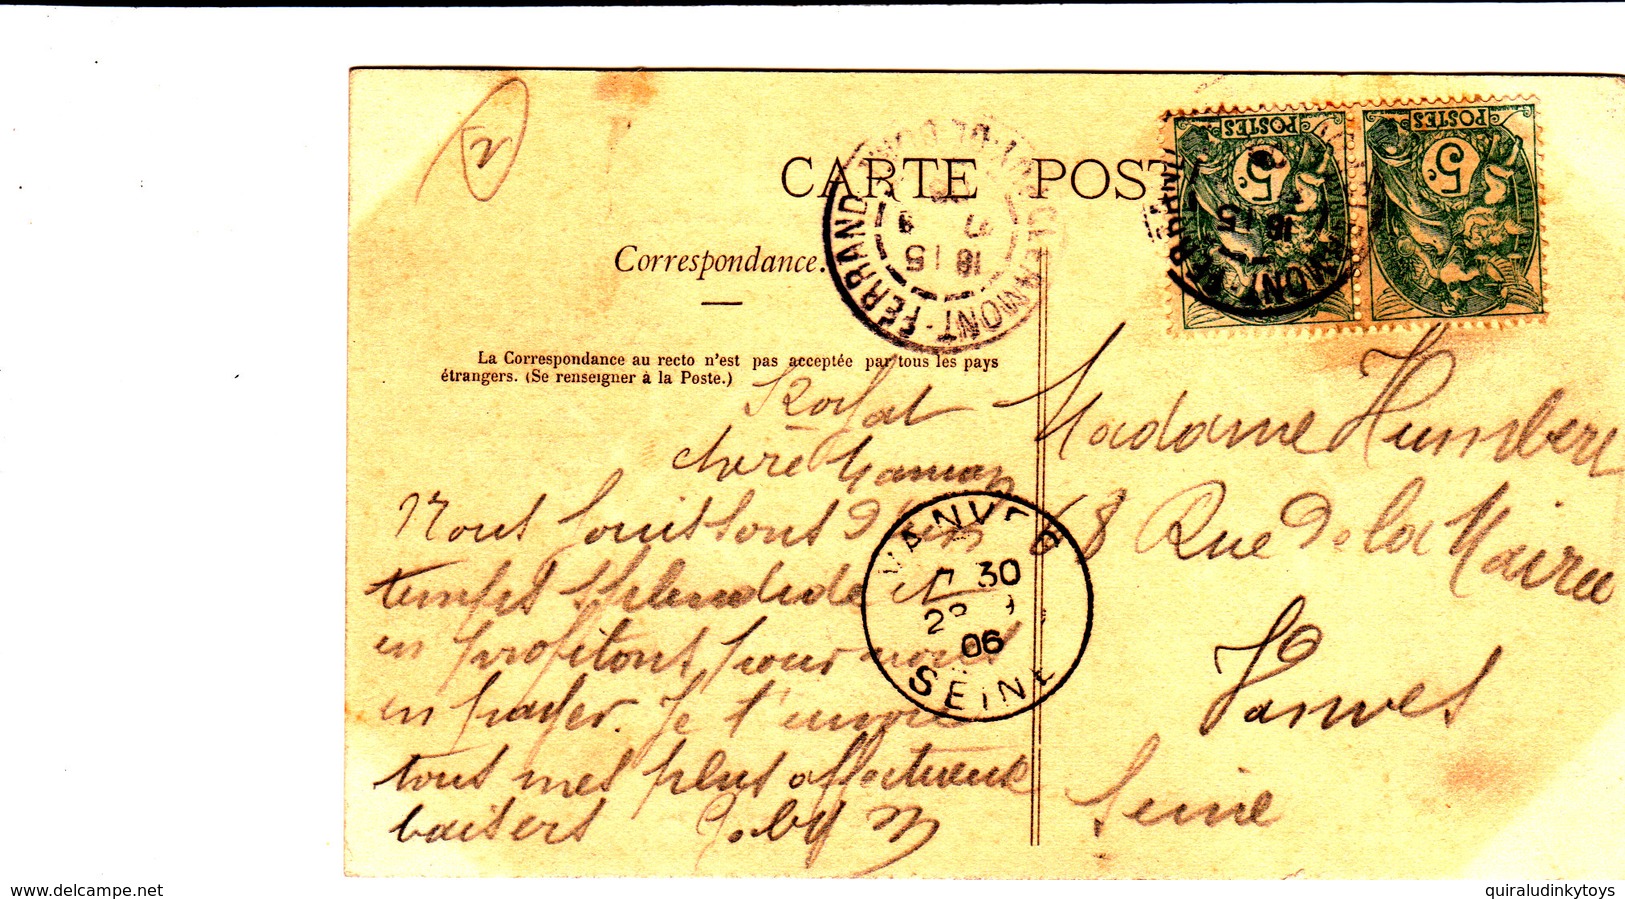 2
CARTE POST
Correspondance.
La Correspondance au recto n'est pas acceptée par tous les pays
étrangers. (Se renseigner à la Poste.)
POSTES
5c
POSTES
5c
CLERMONT-FERRAND
18 15
CLERMONT-FERRAND
Royat
chère Maman
Nous jouissons d'un
temps splendide et
en profitons pour nous
en payer. Je t'envoie
tous mes plus affectueux
baisers Goby
VANVES
7 30
06
SEINE
Madame Humbert
68 Rue de la Mairie
Vanves
Seine
www.delcampe.net
quiraludinkytoys